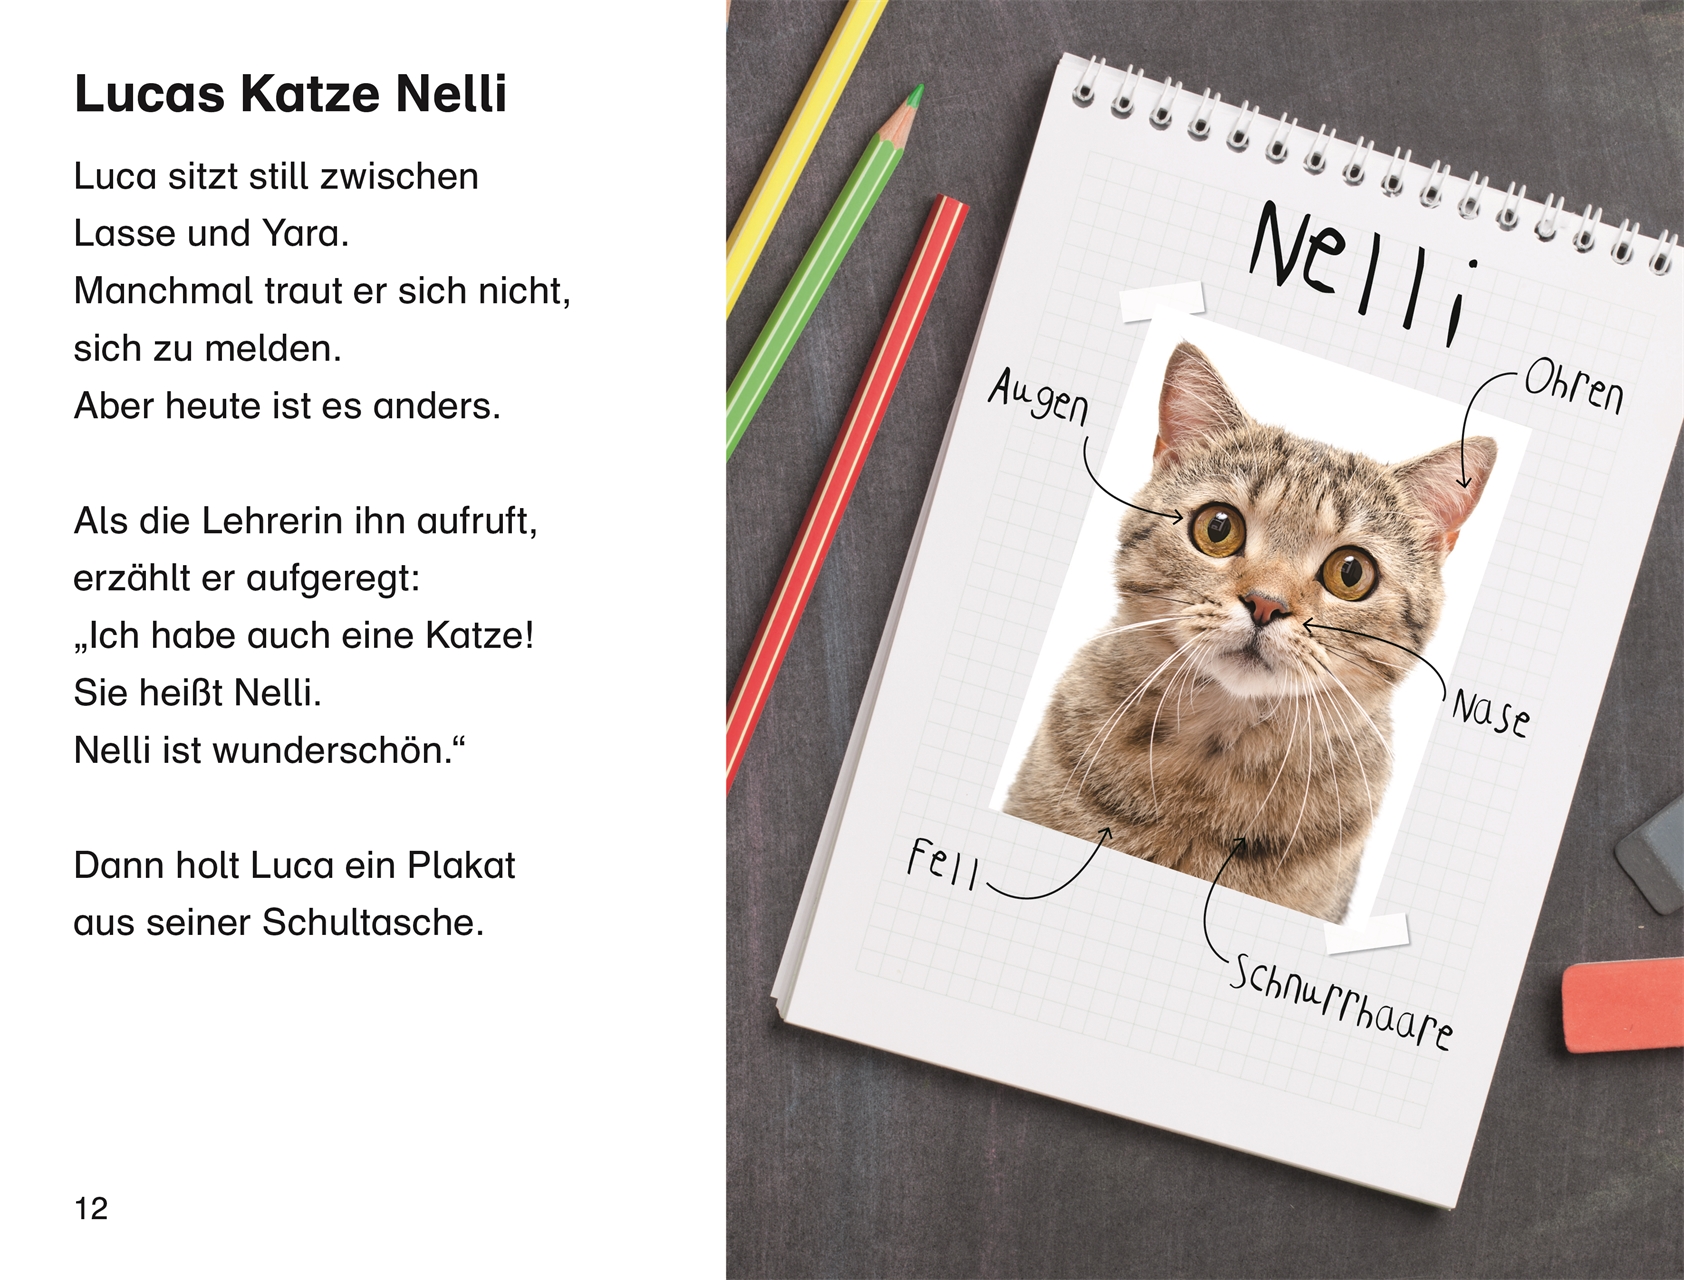 Lucas Katze Nelli
Luca sitzt still zwischen
Lasse und Yara.
Manchmal traut er sich nicht,
sich zu melden.
Aber heute ist es anders.
Als die Lehrerin ihn aufruft,
erzählt er aufgeregt:
„Ich habe auch eine Katze!
Sie heißt Nelli.
Nelli ist wunderschön.“
Dann holt Luca ein Plakat
aus seiner Schultasche.
12
Nelli
Ohren
Augen
Nase
Fell
Schnurrhaare